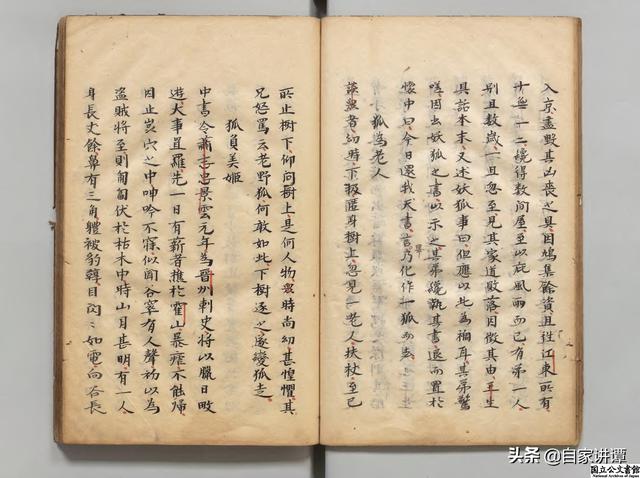 入京盡毀其凶喪之具因鳩集餘資且往江東所有
十無一二纔得数間屋至以庇風雨而已有弟一人
別且数歲一旦忽至見其家道敗落因徵其由王生
具話本末又述妖狐事曰但應以此為禍耳其弟驚
嗟因出妖狐之書以示之其弟纔執其書退而置於
懐中曰今日還我天書言畢乃化作一狐而去
狐為老人
談衆者幼時下扱匿身樹上忽見一老人扶杖至已
所止樹下仰問樹上是何人物衆時尚幼甚惶懼其
兄怒罵云老野狐何敢如此下樹逐之遂變狐走
狐負美姬
中書令蕭志忠景雲元年為晋州刺史將以臘日畋
遊大事且羅先一日有薪者樵於霍山暴瘧不能歸
因止岩穴之中呻吟不寐似聞谷窣有人聲初以為
盜賊將至則匍匐伏於枯木中時山月甚明有一人
身長丈餘鼻有三角體被豹鞹目閃〻如電向谷長
头条 @自家讲谭
国立公文書館
National Archives of Japan